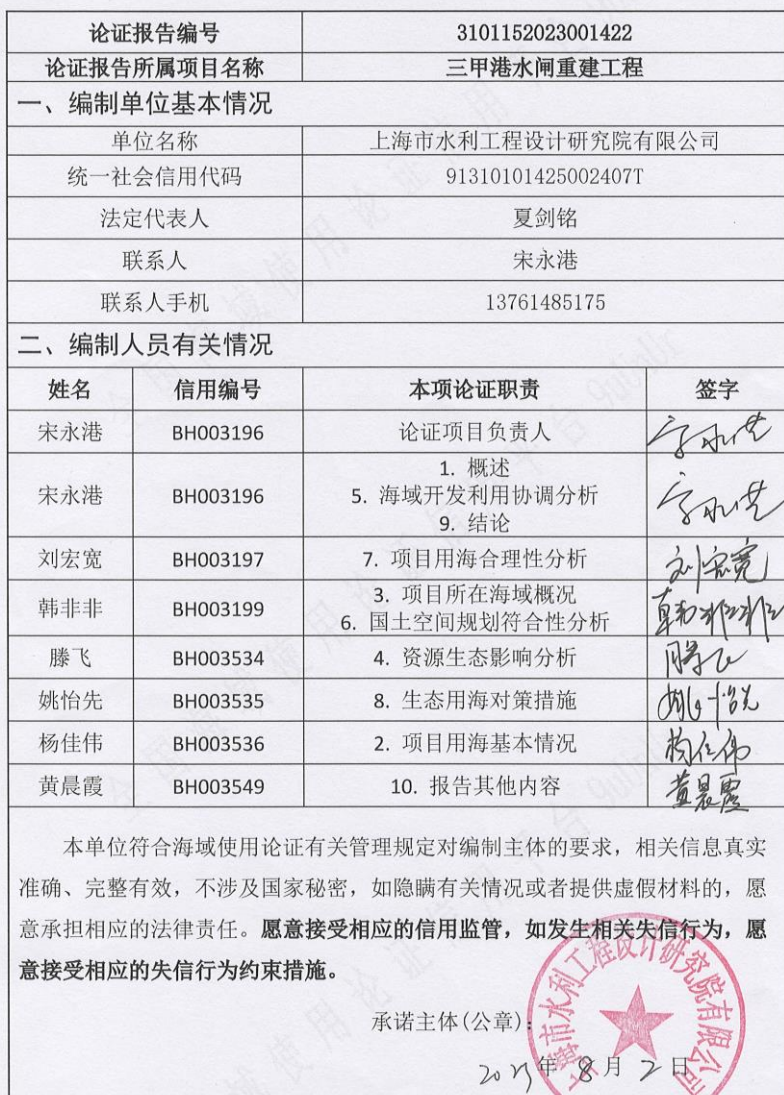 论证报告编号 3101152023001422
论证报告所属项目名称 三甲港水闸重建工程
一、编制单位基本情况
单位名称 上海市水利工程设计研究院有限公司
统一社会信用代码 91310101425002407T
法定代表人 夏剑铭
联系人 宋永港
联系人手机 13761485175
二、编制人员有关情况
姓名 信用编号 本项论证职责 签字
宋永港 BH003196 论证项目负责人 宋永港
宋永港 BH003196 1. 概述
5. 海域开发利用协调分析 宋永港
9. 结论
刘宏宽 BH003197 7. 项目用海合理性分析 刘宏宽
韩非非 BH003199 3. 项目所在海域概况
6. 国土空间规划符合性分析 韩非非
滕飞 BH003534 4. 资源生态影响分析 滕飞
姚怡先 BH003535 8. 生态用海对策措施 姚怡先
杨佳伟 BH003536 2. 项目用海基本情况 杨佳伟
黄晨霞 BH003549 10. 报告其他内容 黄晨霞
本单位符合海域使用论证有关管理规定对编制主体的要求，相关信息真实
准确、完整有效，不涉及国家秘密，如隐瞒有关情况或者提供虚假材料的，愿
意承担相应的法律责任。愿意接受相应的信用监管，如发生相关失信行为，愿
意接受相应的失信行为约束措施。
承诺主体(公章)：
2023年 8月 2日
上海市水利工程设计研究院有限公司